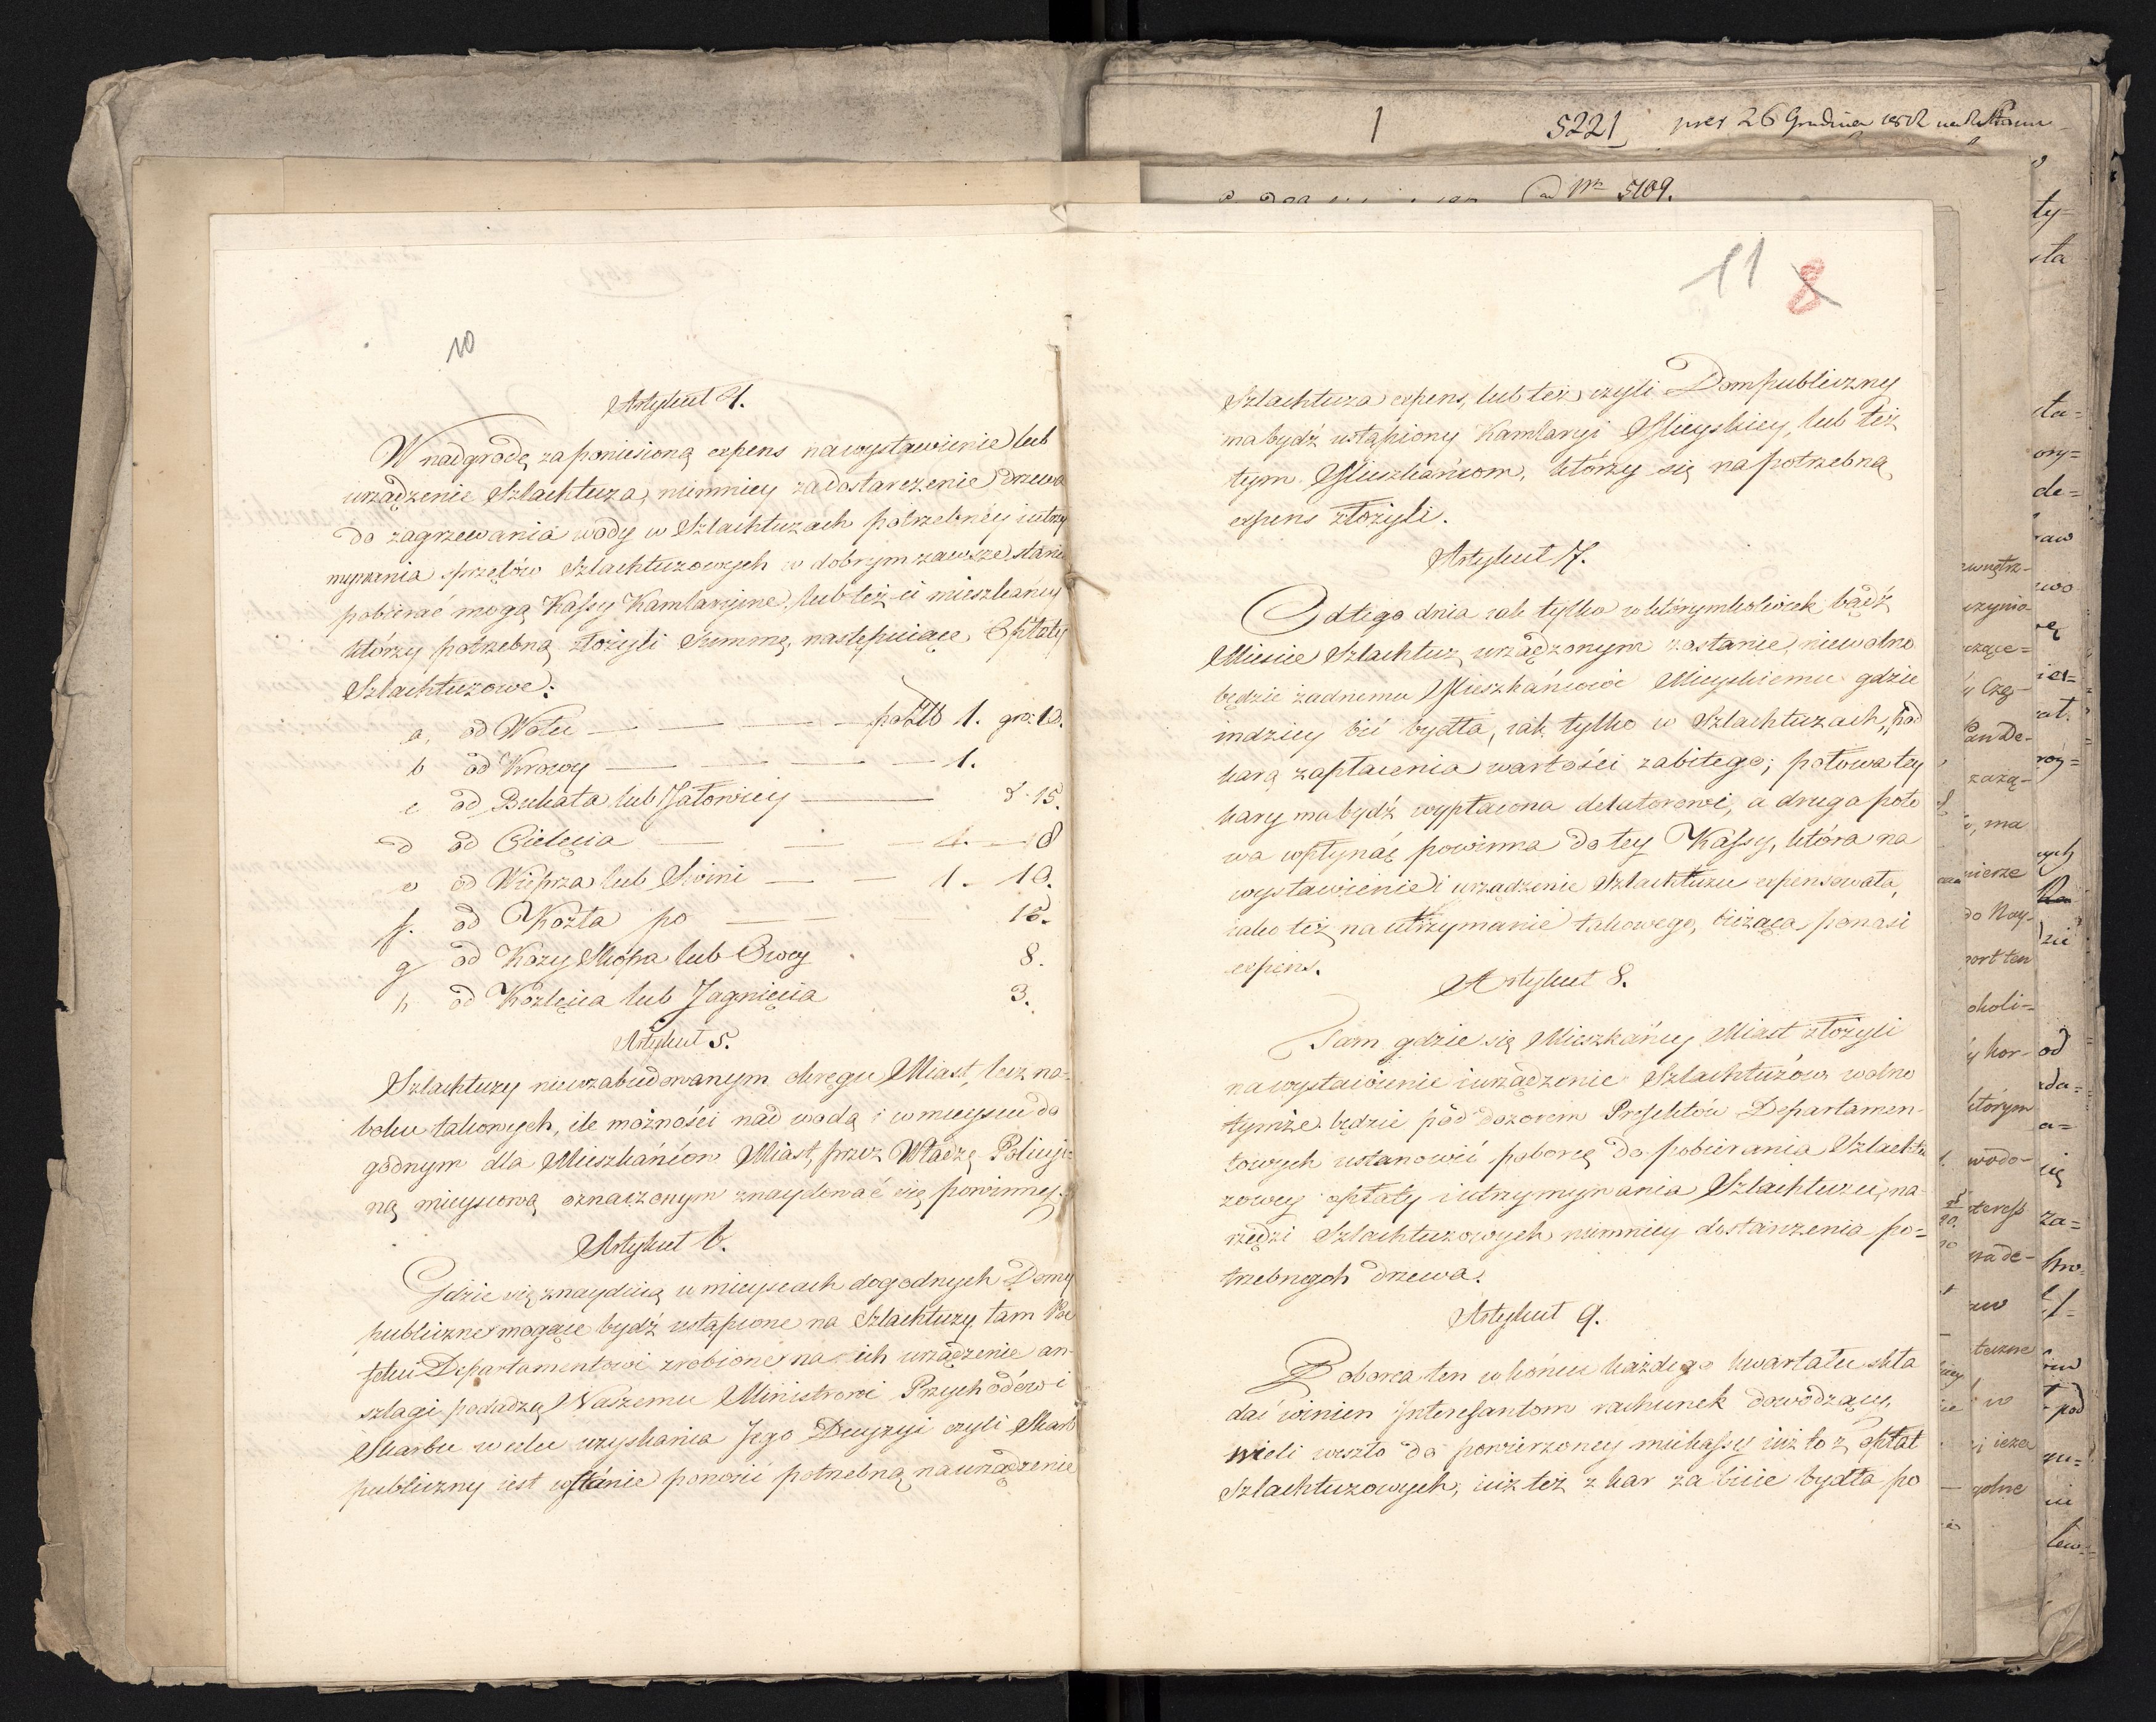 10
Artykuł 4.
W nadgrodę za poniesioną expens na wystawienie lub
urządzenie Szlachtuza, niemniey za dostarczenie drzewa
do zagrzewania wody w Szlachtuzach potrzebney i utrzy
mywania sprzętów Szlachtuzowych w dobrym zawsze stanie
pobierać mogą Kassy Kamlaryine, lub też ci mieszkańcy
którzy potrzebną złożyli Summę, następuiące Opłaty
Szlachtuzowe:
a, od Wołu — — — — po Złb 1. gro: 10.
b od Krowy — — — — 1.
c od Bukata lub Jałowicy — 15.
d od Cielęcia — — — 18
e od Wieprza lub Swini — — 1 — 10.
f. od Kozła po — — — 10.
g od Kozy Skopa lub Owcy 8.
h od Koźlęcia lub Jagnięcia 3.
Artykuł 5.
Szlachtuzy nie w zabudowanym okręgu Miast, lecz na
boku takowych, ile możności nad wodą i w mieyscu do
godnym dla Mieszkańców Miast, przez Władzę Policyi
ną mieyscową oznaczonym znaydować się powinny.
Artykuł 6.
Gdzie się znayduią w mieyscach dogodnych Domy
publiczne mogące bydź ustąpione na Szlachtuzy, tam
Departamentowi zrobione na ich urządzenie an-
szlagi podadzą Naszemu Ministrowi Przychodów i
Skarbu w celu uzyskania Jego Decyzyi czyli Skarb
publiczny iest w stanie ponosić potrzebną na urządzenie
1 5221 26 Grudnia
5109.
11 8
Szlachtuza expens, lub też, czyli Dom publiczny
ma bydź ustąpiony Kamlaryi Mieyskiey, lub też
tym Mieszkańcom, którzy się na potrzebną
expens złożyli.
Artykuł 7.
Od tego dnia iak tylko w którymkolwiek bądź
Mieście Szlachtuz urządzonym zostanie, niewolno
będzie żadnemu Mieszkańcowi Mieyskiemu gdzie
indziey bić bydła, iak tylko w Szlachtuzach, pod
karą zapłacenia wartości zabitego; połowa tey
kary ma bydź wypłacona delatorowi, a druga poło
wa wpłynąć powinna do tey Kassy, która na
wystawienie i urządzenie Szlachtuzu expensowała,
iako też na utrzymanie takowego, bieżącą ponosi
expens.
Artykuł 8.
Tam gdzie się Mieszkańcy Miast złożyli
na wystawienie i urządzenie Szlachtuzów wolno
tymże będzie pod dozorem Prefektów Departamen-
towych ustanowić poborcę do pobierania Szlachtu
zowey opłaty i utrzymywania Szlachtuzu, na-
rzędzi Szlachtuzowych niemniey dostarczenia po=
trzebnych drzewa.
Artykuł 9.
Poborca ten w końcu każdego kwartału skła
dać winien Interessantom rachunek dowodzący,
wieli weszło do powierzoney mu kassy iuż to z opłat
Szlachtuzowych, iuż też z kar za bicie bydła po